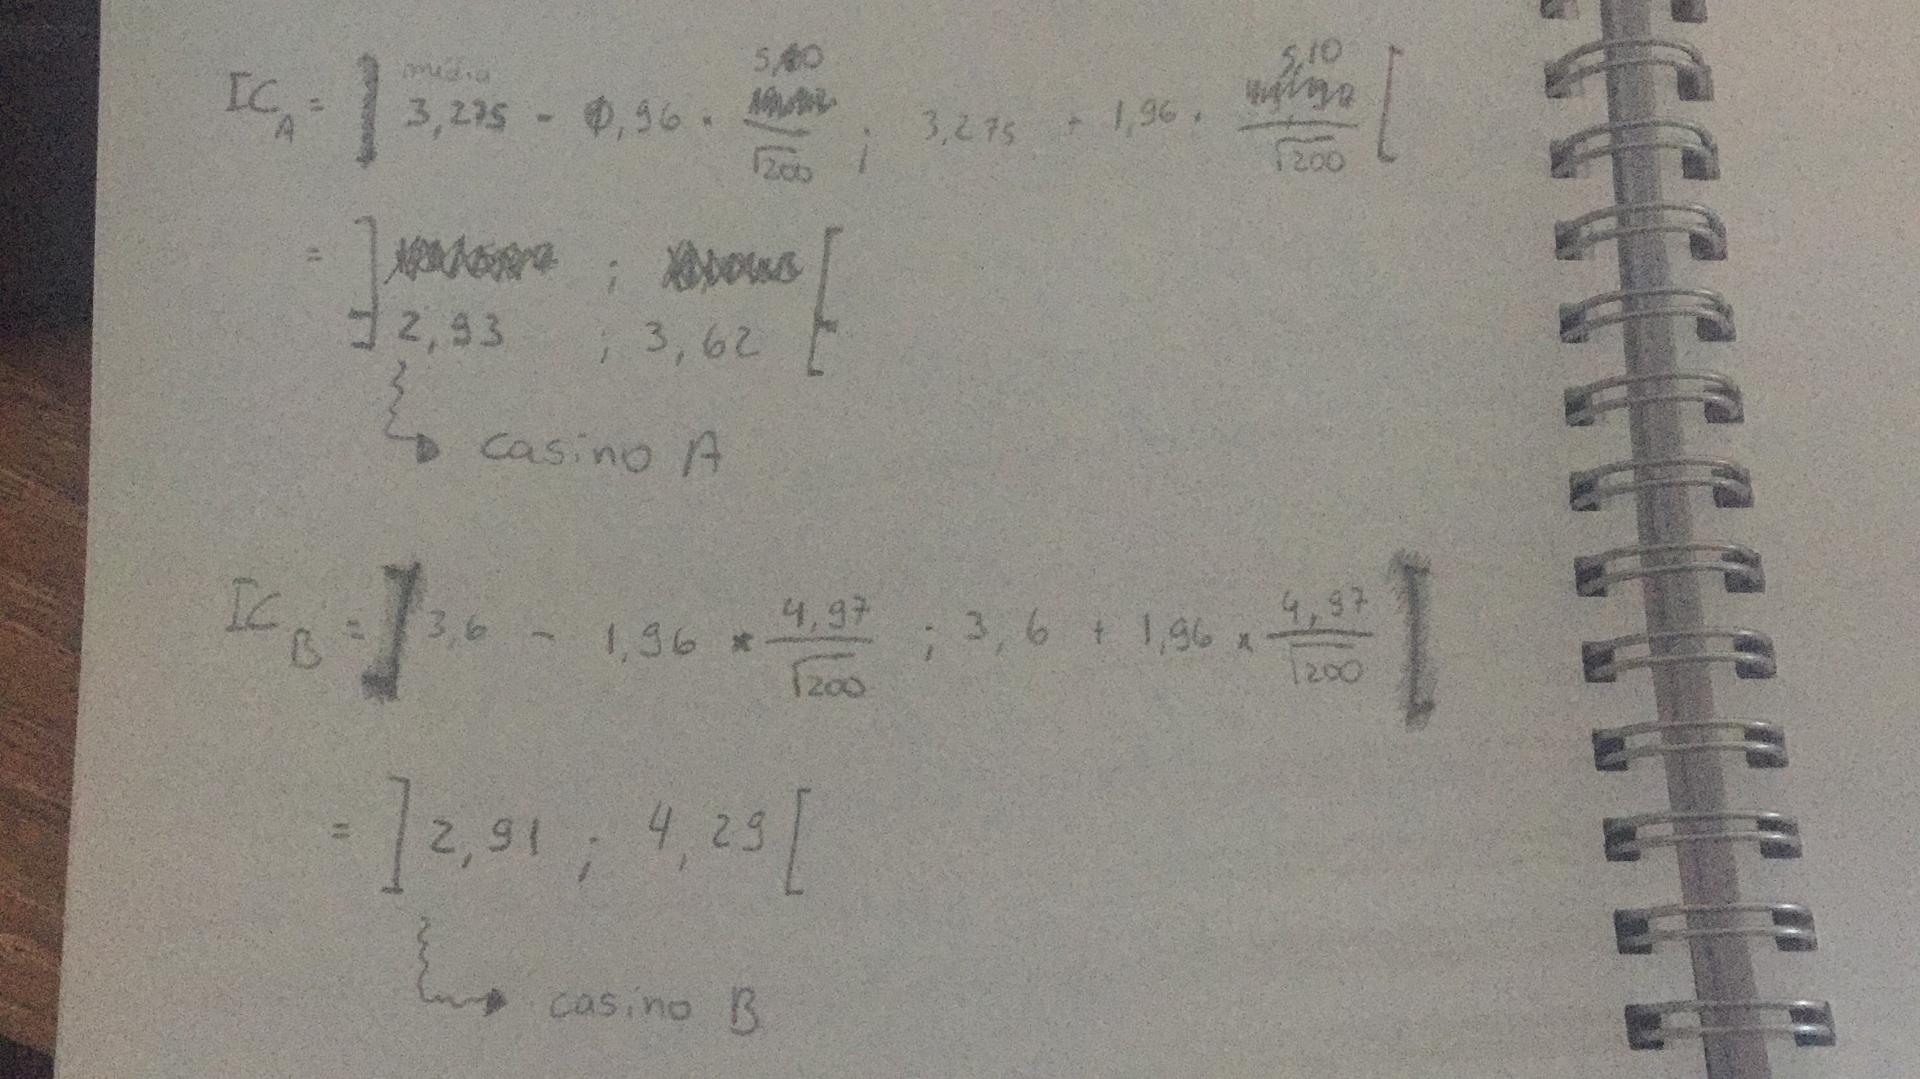 média
IC_A = ] 3,275 - 1,96 . 5,10/√200 ; 3,275 + 1,96 . 5,10/√200 [
= ] ; [
] 2,93 ; 3,62 [
casino A
IC_B = ] 3,6 - 1,96 * 4,97/√200 ; 3,6 + 1,96 * 4,97/√200 [
= ] 2,91 ; 4,29 [
casino B